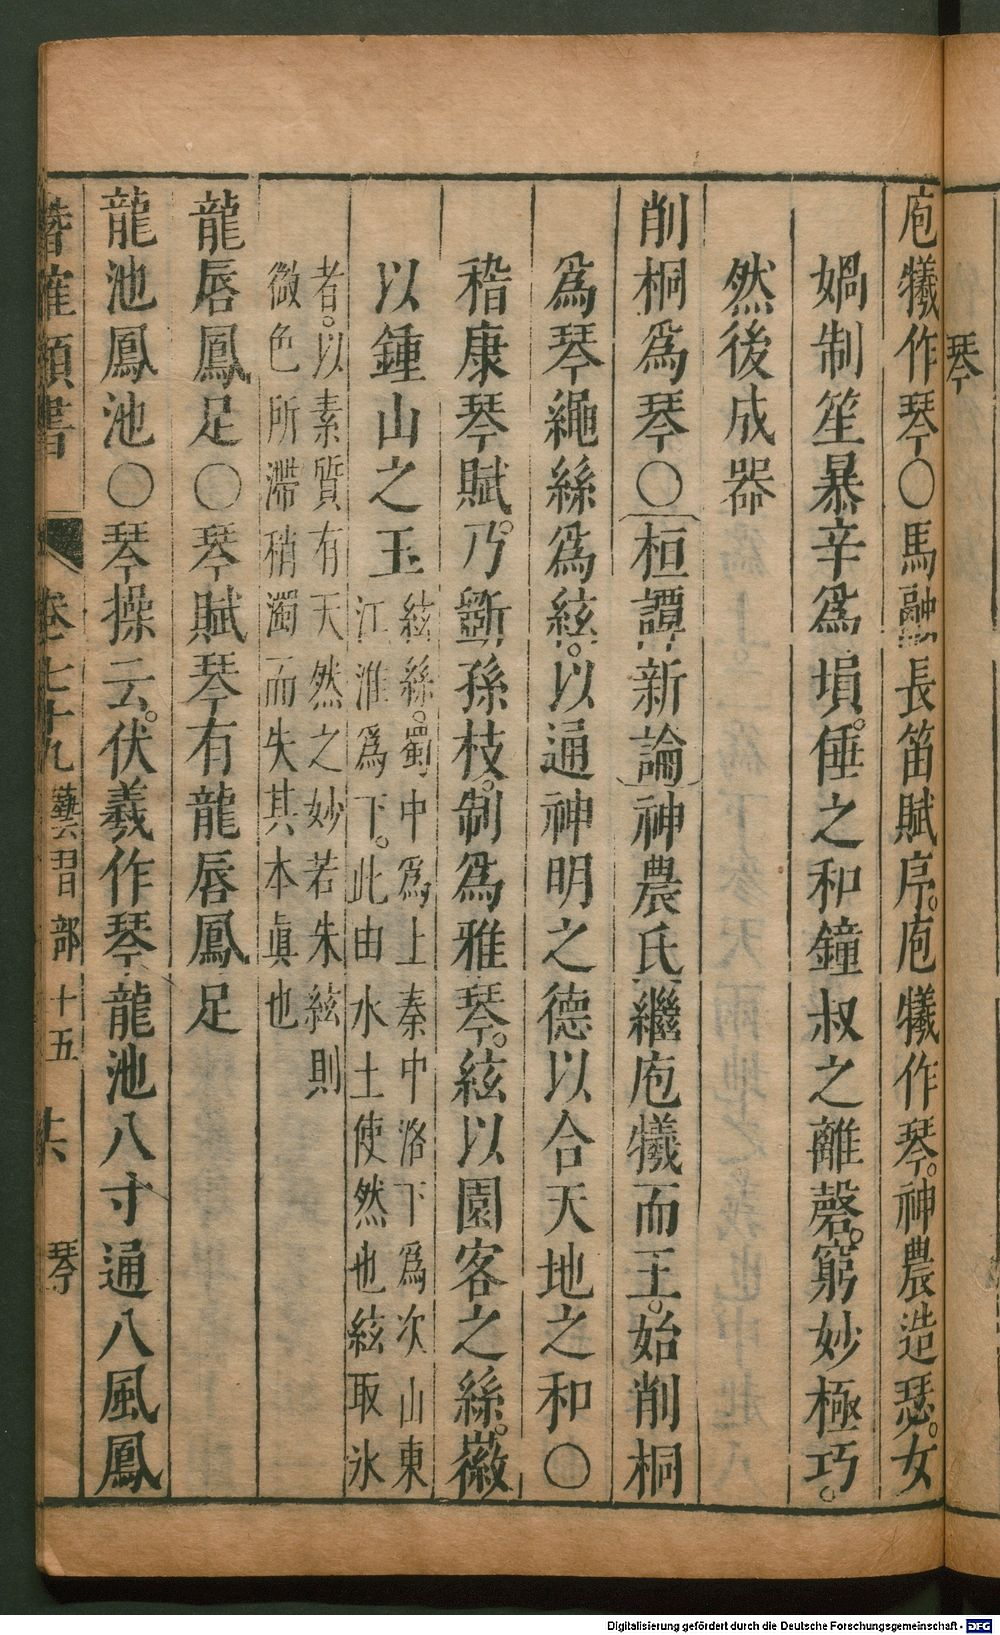 琴
庖犧作琴〇馬融長笛賦序。庖犧作琴。神農造瑟。女
媧制笙暴辛爲塤。倕之和鐘叔之離磬。窮妙極巧。
然後成器
削桐爲琴〇桓譚新論神農氏繼庖犧而王。始削桐
爲琴繩絲爲絃。以通神明之德以合天地之和〇
嵇康琴賦。乃斵孫枝。制爲雅琴。絃以園客之絲。徽
以鍾山之玉
絃絲。蜀中爲上秦中洛下爲次山東
江淮爲下。此由水土使然也絃取氷
者。以素質有天然之妙若朱絃則
微色所滯稍濁而失其本眞也
龍唇鳳足〇琴賦琴有龍唇鳳足
龍池鳳池〇琴操云。伏羲作琴。龍池八寸通八風鳳
潛確類書 卷七十九 藝習部十五 共 琴
Digitalisierung gefördert durch die Deutsche Forschungsgemeinschaft - DFG